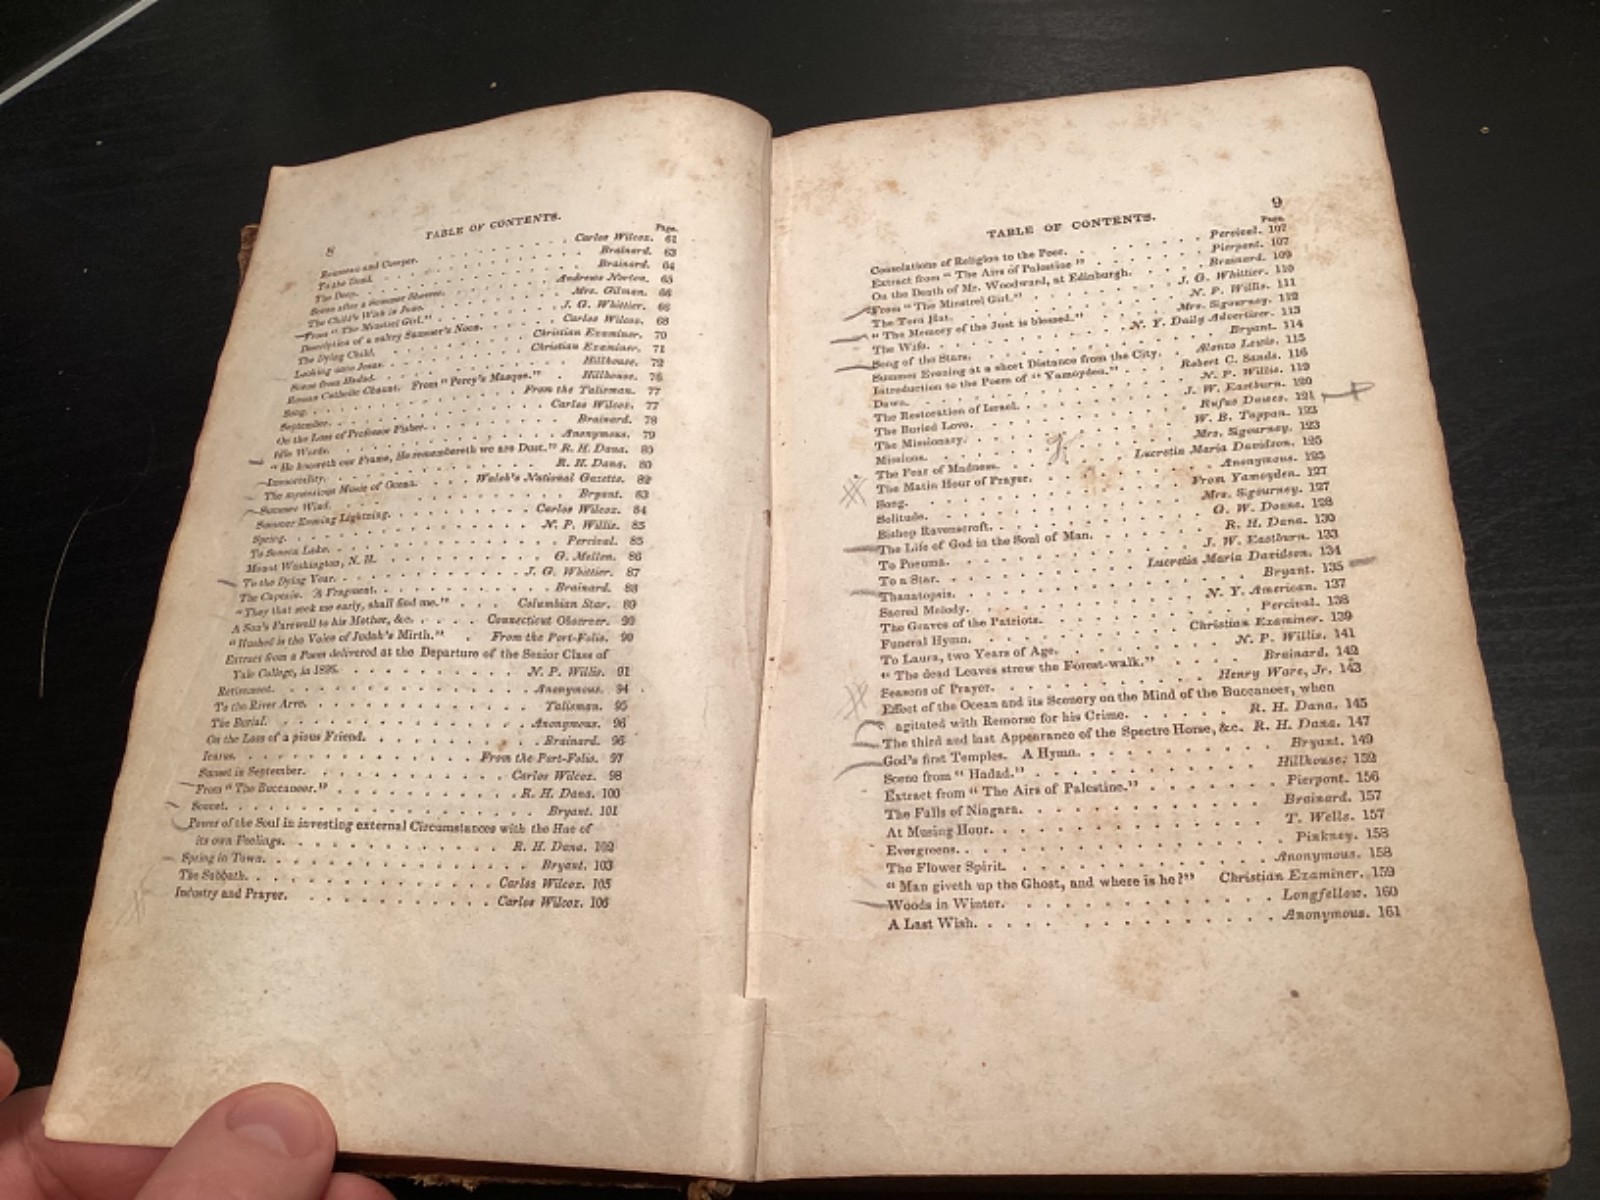 8 TABLE OF CONTENTS.
Page.
Rousseau and Cowper. Carlos Wilcox. 61
To the Dead. Brainard. 63
The Deep. Brainard. 64
Scene after a Summer Shower. Andrews Norton. 65
The Child's Wish in June. Mrs. Gilman. 66
From "The Minstrel Girl." J. G. Whittier. 66
Description of a sultry Summer's Noon. Carlos Wilcox. 68
The Dying Child. Christian Examiner. 70
Looking unto Jesus. Christian Examiner. 71
Scene from Hadad. Hillhouse. 72
Roman Catholic Chaunt. From "Percy's Masque." Hillhouse. 76
Song. From the Talisman. 77
September. Carlos Wilcox. 77
On the Loss of Professor Fisher. Brainard. 78
Idle Words. Anonymous. 79
"He knoweth our Frame, He remembereth we are Dust." R. H. Dana. 80
Immortality. R. H. Dana. 80
The mysterious Music of Ocean. Walsh's National Gazette. 82
Summer Wind. Bryant. 83
Summer Evening Lightning. Carlos Wilcox. 84
Spring. N. P. Willis. 85
To Seneca Lake. Percival. 85
Mount Washington, N. H. G. Mellen. 86
To the Dying Year. J. G. Whittier. 87
The Captain. A Fragment. Brainard. 88
"They that seek me early, shall find me." Columbian Star. 89
A Son's Farewell to his Mother, &c. Connecticut Observer. 90
"Hushed is the Voice of Judah's Mirth." From the Port-Folio. 90
Extract from a Poem delivered at the Departure of the Senior Class of
Yale College, in 1826. N. P. Willis. 91
Retirement. Anonymous. 94
To the River Arve. Talisman. 95
The Burial. Anonymous. 96
On the Loss of a pious Friend. Brainard. 96
Icarus. From the Port-Folio. 97
Sunset in September. Carlos Wilcox. 98
From "The Buccaneer." R. H. Dana. 100
Sonnet. Bryant. 101
Power of the Soul in investing external Circumstances with the Hue of
its own Feelings. R. H. Dana. 102
Spring in Town. Bryant. 103
The Sabbath. Carlos Wilcox. 105
Industry and Prayer. Carlos Wilcox. 106
TABLE OF CONTENTS. 9
Page.
Consolations of Religion to the Poor. Percival. 107
Extract from "The Airs of Palestine" Pierpont. 107
On the Death of Mr. Woodward, at Edinburgh. Brainard. 109
From "The Minstrel Girl." J. G. Whittier. 110
The Torn Hat. N. P. Willis. 111
"The Memory of the Just is blessed." Mrs. Sigourney. 112
The Wife. N. Y. Daily Advertiser. 113
Song of the Stars. Bryant. 114
Summer Evening at a short Distance from the City. Alonzo Lewis. 115
Introduction to the Poem of "Yamoyden." Robert C. Sands. 116
Dawn. N. P. Willis. 119
The Restoration of Israel. J. W. Eastburn. 120
The Buried Love. Rufus Dawes. 121
The Missionary. W. B. Tappan. 123
Missions. Mrs. Sigourney. 123
The Fear of Madness. Lucretia Maria Davidson. 125
The Matin Hour of Prayer. Anonymous. 125
Song. From Yamoyden. 127
Solitude. Mrs. Sigourney. 127
Bishop Ravenscroft. G. W. Doane. 128
The Life of God in the Soul of Man. R. H. Dana. 130
To Pneuma. J. W. Eastburn. 133
To a Star. Lucretia Maria Davidson. 134
Thanatopsis. Bryant. 135
Sacred Melody. N. Y. American. 137
The Graves of the Patriots. Percival. 138
Funeral Hymn. Christian Examiner. 139
To Laura, two Years of Age. N. P. Willis. 141
"The dead Leaves strew the Forest-walk." Brainard. 142
Seasons of Prayer. Henry Ware, Jr. 143
Effect of the Ocean and its Scenery on the Mind of the Buccaneer, when
agitated with Remorse for his Crime. R. H. Dana. 145
The third and last Appearance of the Spectre Horse, &c. R. H. Dana. 147
God's first Temples. A Hymn. Bryant. 149
Scene from "Hadad." Hillhouse. 152
Extract from "The Airs of Palestine." Pierpont. 156
The Falls of Niagara. Brainard. 157
At Musing Hour. T. Wells. 157
Evergreens. Pinkney. 158
The Flower Spirit. Anonymous. 158
"Man giveth up the Ghost, and where is he?" Christian Examiner. 159
Woods in Winter. Longfellow. 160
A Last Wish. Anonymous. 161